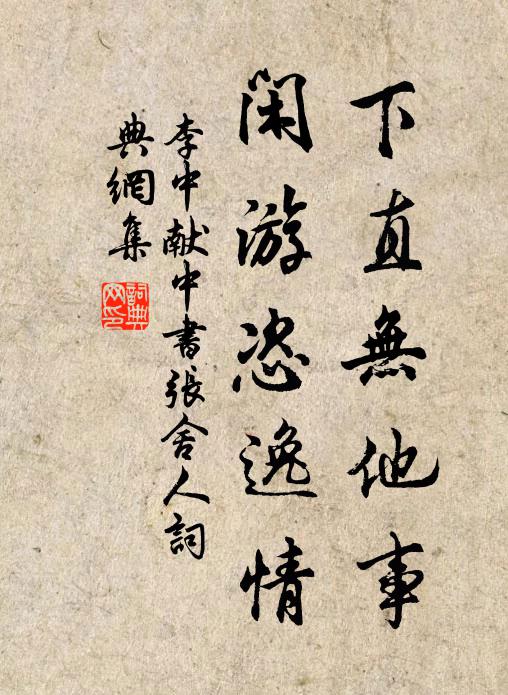 下直無他事
閑游恣逸情
李中献中書張舍人詞
典網集
詞典网印